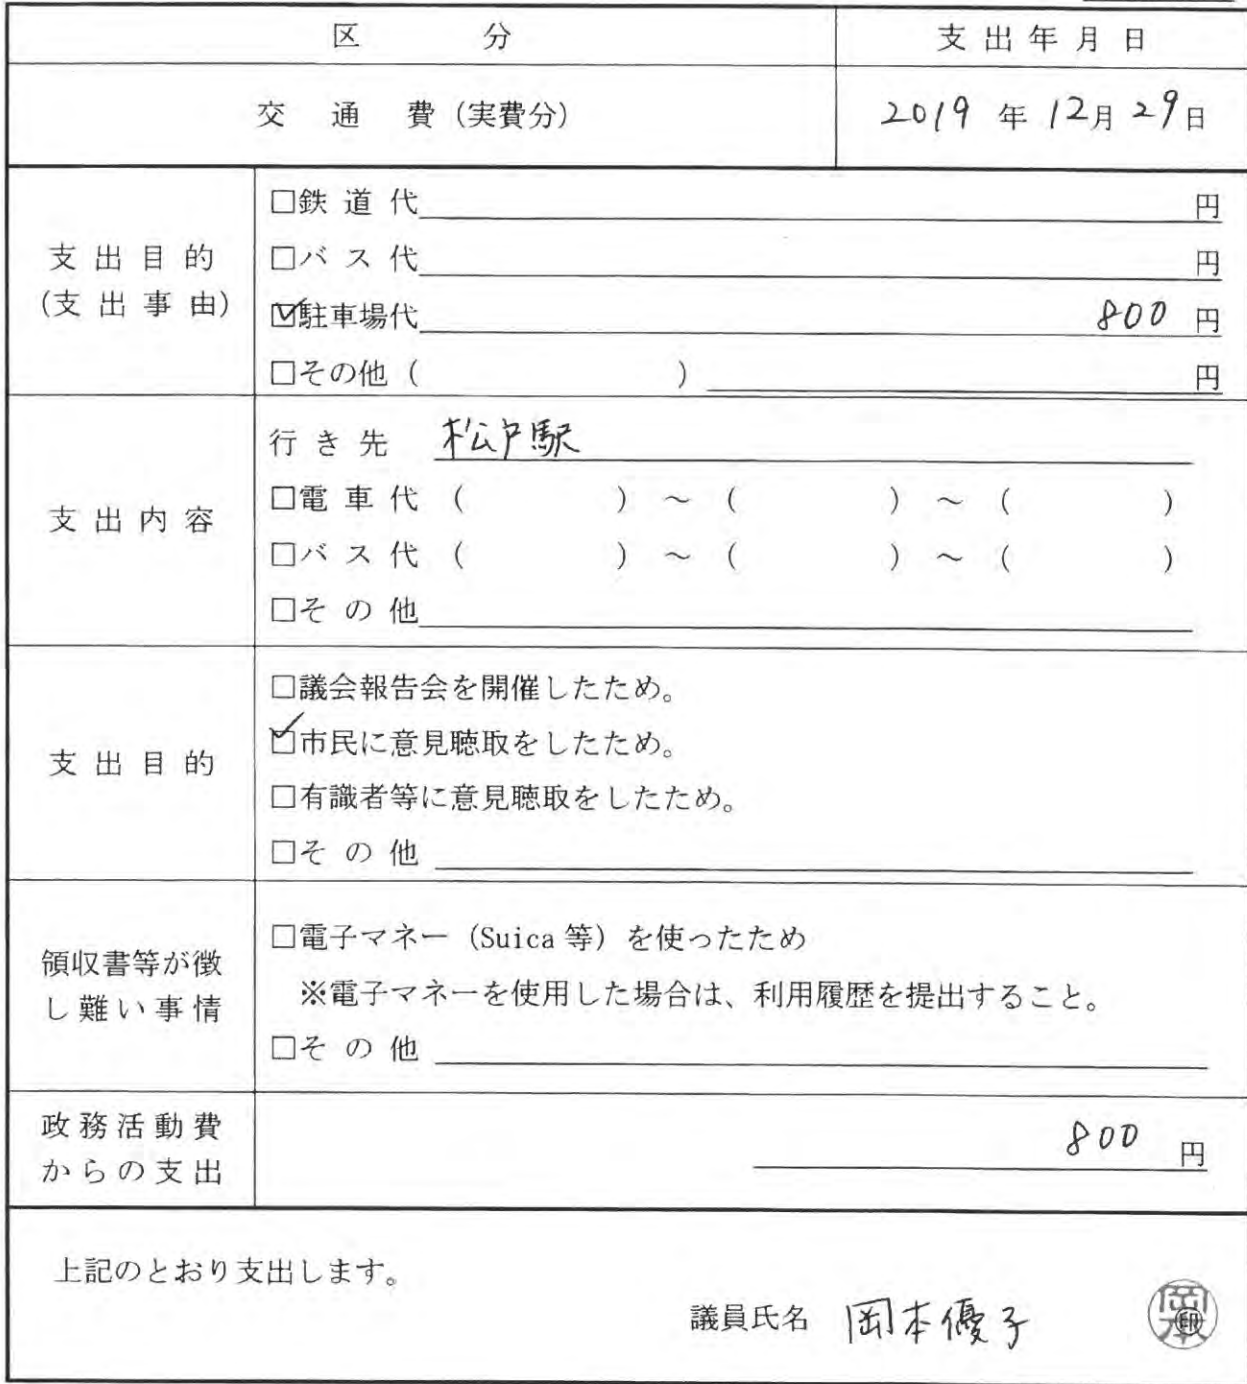 区 分 支出年月日
交 通 費（実費分） 2019 年 12月 29日
支出目的
(支出事由)
□鉄道代 円
□バス代 円
☑駐車場代 800 円
□その他（ ） 円
支出内容
行き先 松戸駅
□電車代（ ）～（ ）～（ ）
□バス代（ ）～（ ）～（ ）
□その他
支出目的
□議会報告会を開催したため。
☑市民に意見聴取をしたため。
□有識者等に意見聴取をしたため。
□その他
領収書等が徴
し難い事情
□電子マネー（Suica 等）を使ったため
※電子マネーを使用した場合は、利用履歴を提出すること。
□その他
政務活動費
からの支出
800 円
上記のとおり支出します。
議員氏名 岡本優子 岡本 ㊞